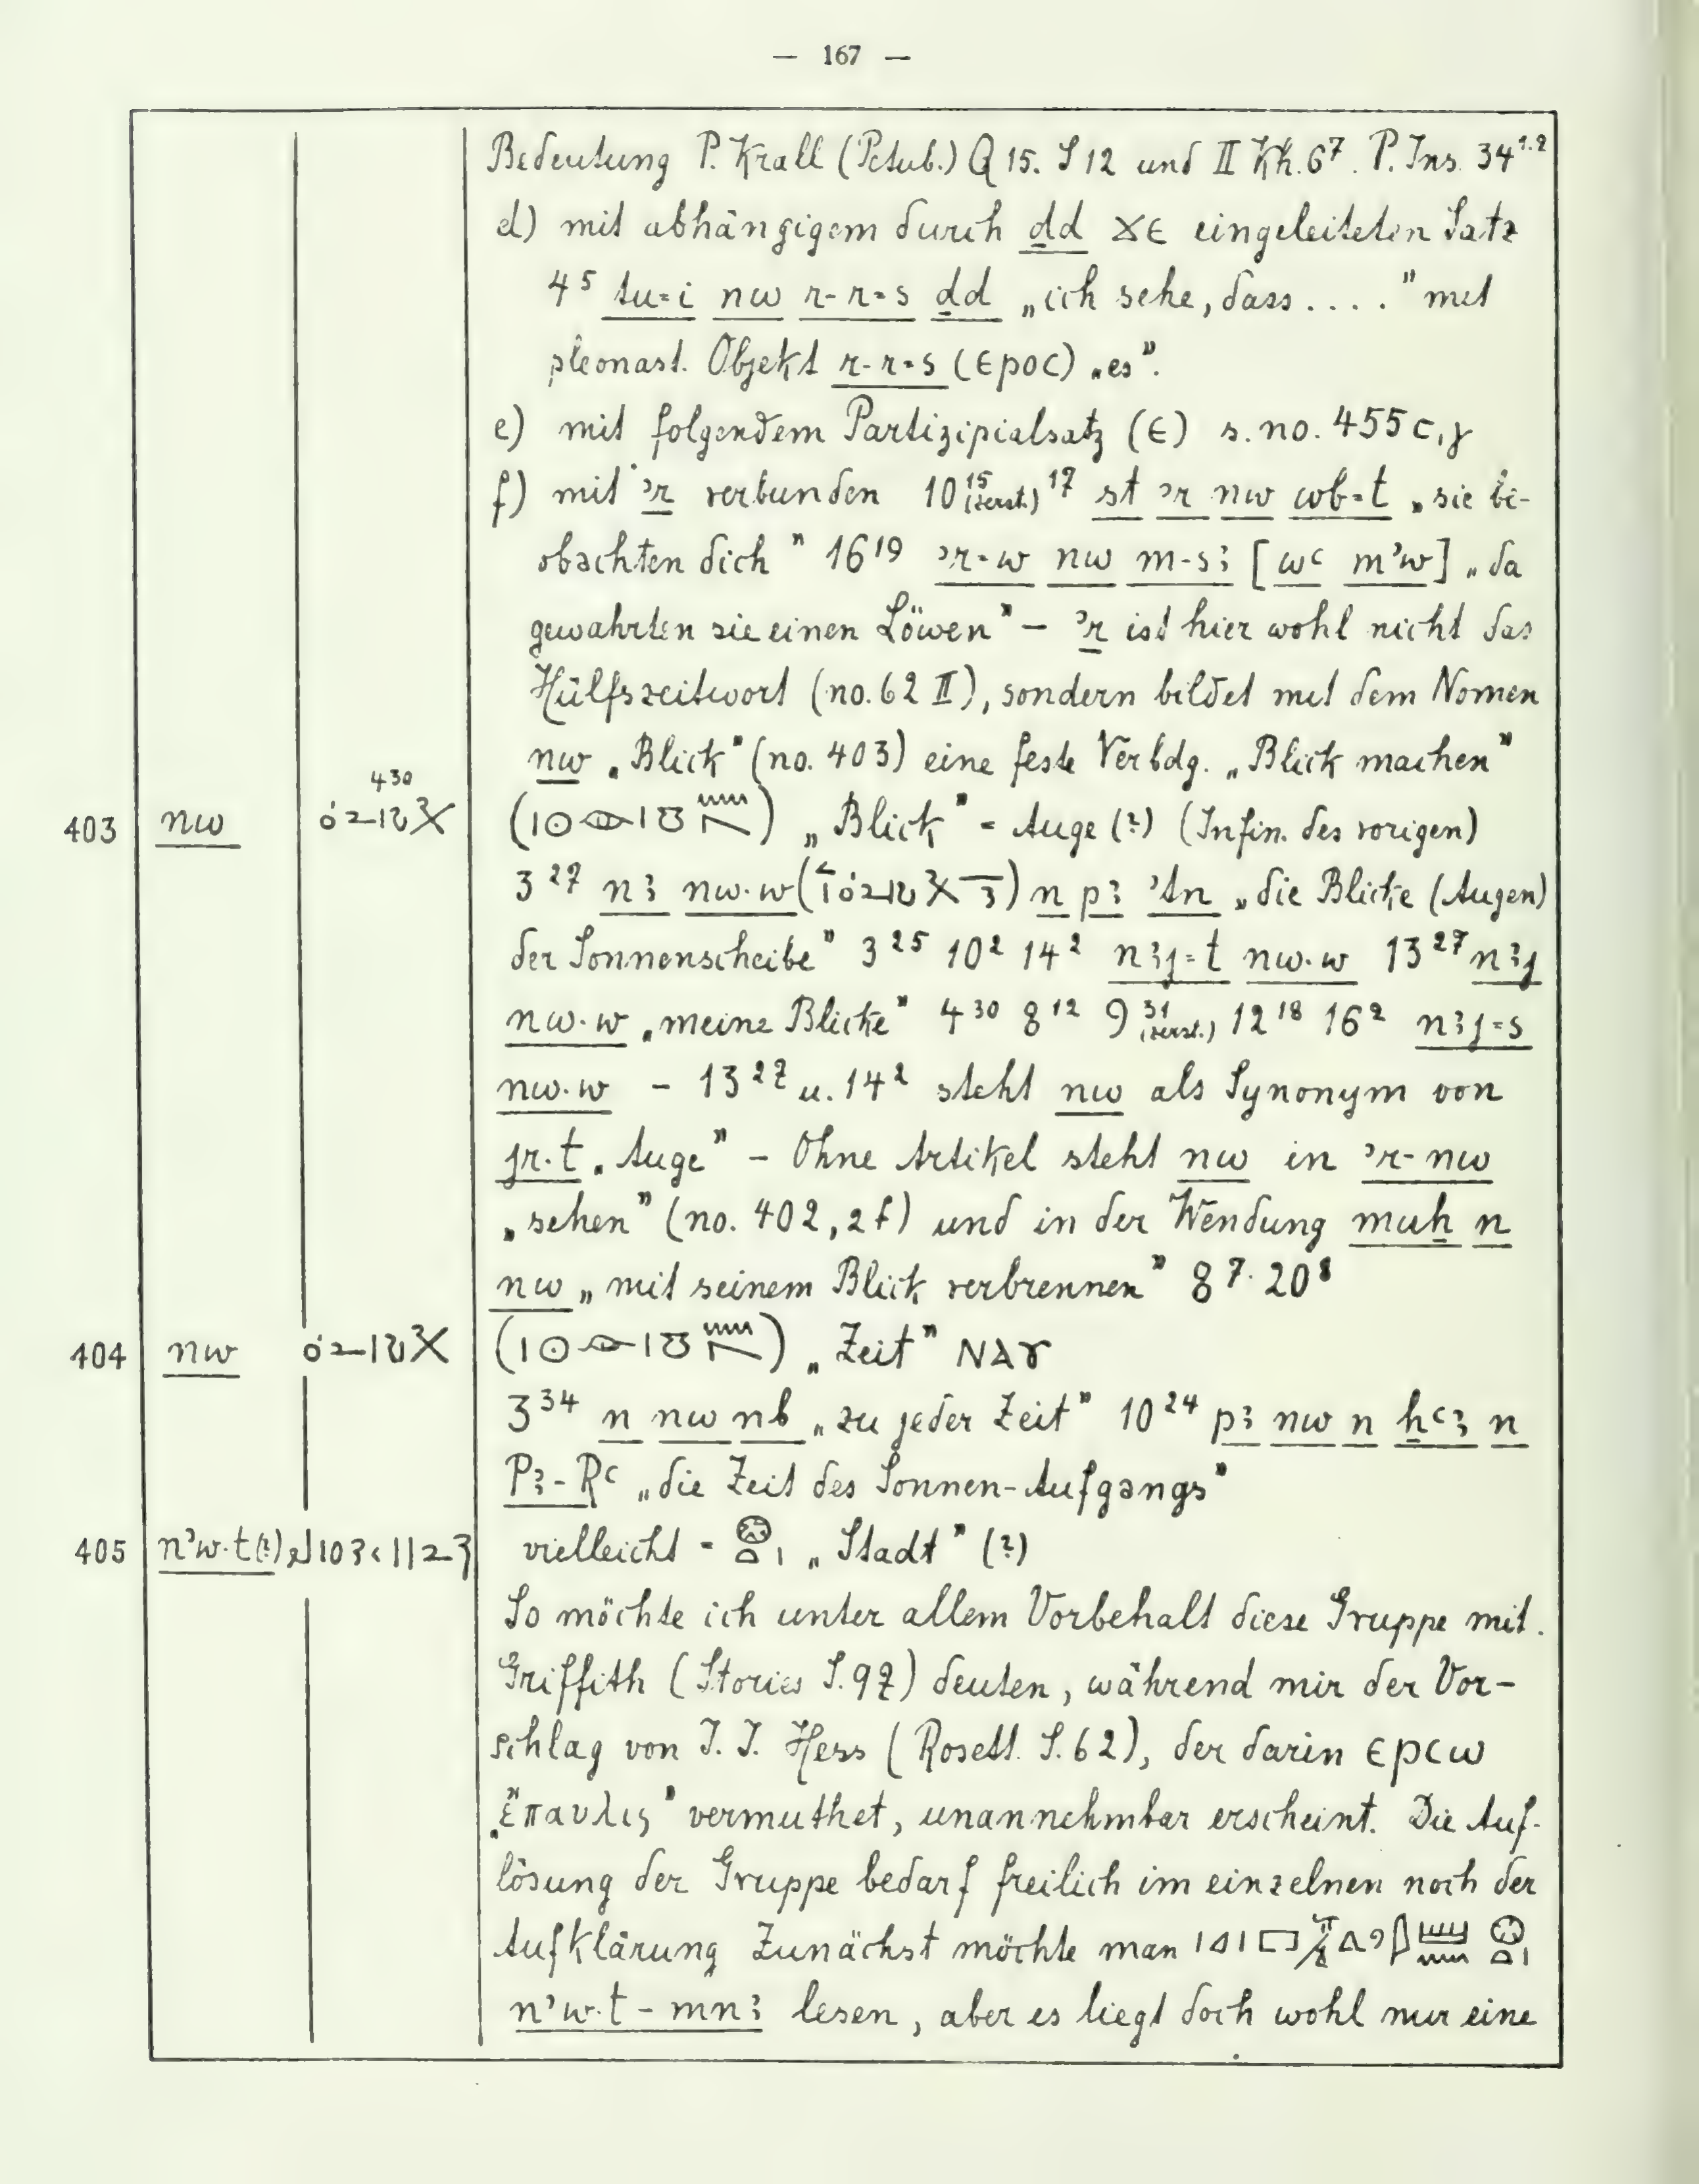 — 167 —
Bedeutung P. Krall (Petub.) Q 15. S 12 und II Kh. 6⁷. P. Ins. 34¹·²
d) mit abhängigem durch ḏd ϫⲉ eingeleiteten Satz
4⁵ tu=i nw r-r=s ḏd „ich sehe, dass . . . . " mit
pleonast. Objekt r-r=s (ⲉⲣⲟⲥ) „es".
e) mit folgendem Partizipialsatz (ⲉ) s. no. 455 c, γ
f) mit ꜥr verbunden 10¹⁵ (zerst.) ¹⁷ st ꜥr nw wb=t „sie be-
obachten dich" 16¹⁹ ꜥr=w nw m-sꜣ [wꜥ mꜥw] „da
gewahrten sie einen Löwen" – ꜥr ist hier wohl nicht das
Hülfszeitwort (no. 62 II), sondern bildet mit dem Nomen
nw „Blick" (no. 403) eine feste Verbdg. „Blick machen"
403 nw 4³⁰ „Blick" = Auge (?) (Infin. des vorigen)
3²⁷ nꜣ nw·w n pꜣ ꜥtn „die Blicke (Augen)
der Sonnenscheibe" 3²⁵ 10² 14² nꜣj=t nw·w 13²⁷ nꜣj
nw·w „meine Blicke" 4³⁰ 8¹² 9³¹ (zerst.) 12¹⁸ 16² nꜣj=s
nw·w – 13²⁷ u. 14² steht nw als Synonym von
jr·t „Auge" – Ohne Artikel steht nw in ꜥr-nw
„sehen" (no. 402, 2 f) und in der Wendung muḫ n
nw „mit seinem Blick verbrennen" 8⁷· 20⁸
404 nw „Zeit" ⲚⲀⲨ
3³⁴ n nw nb „zu jeder Zeit" 10²⁴ pꜣ nw n ḫꜥꜣ n
Pꜣ-Rꜥ „die Zeit des Sonnen-Aufgangs"
405 nꜥw·t(?) vielleicht = 𓊖𓏏𓏤 „Stadt" (?)
So möchte ich unter allem Vorbehalt diese Gruppe mit
Griffith (Stories S. 97) deuten, während mir der Vor-
schlag von J. J. Hess (Rosett. S. 62), der darin ⲉⲣⲥⲱ
„ἔπαυλις" vermuthet, unannehmbar erscheint. Die Auf-
lösung der Gruppe bedarf freilich im einzelnen noch der
Aufklärung Zunächst möchte man
nꜥw·t – mnꜣ lesen, aber es liegt doch wohl nur eine